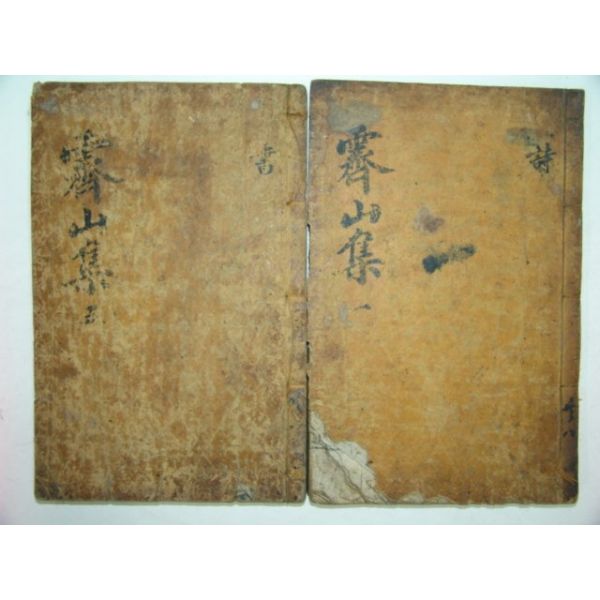 詩
霽山集 一
共八
書
霽山集 五